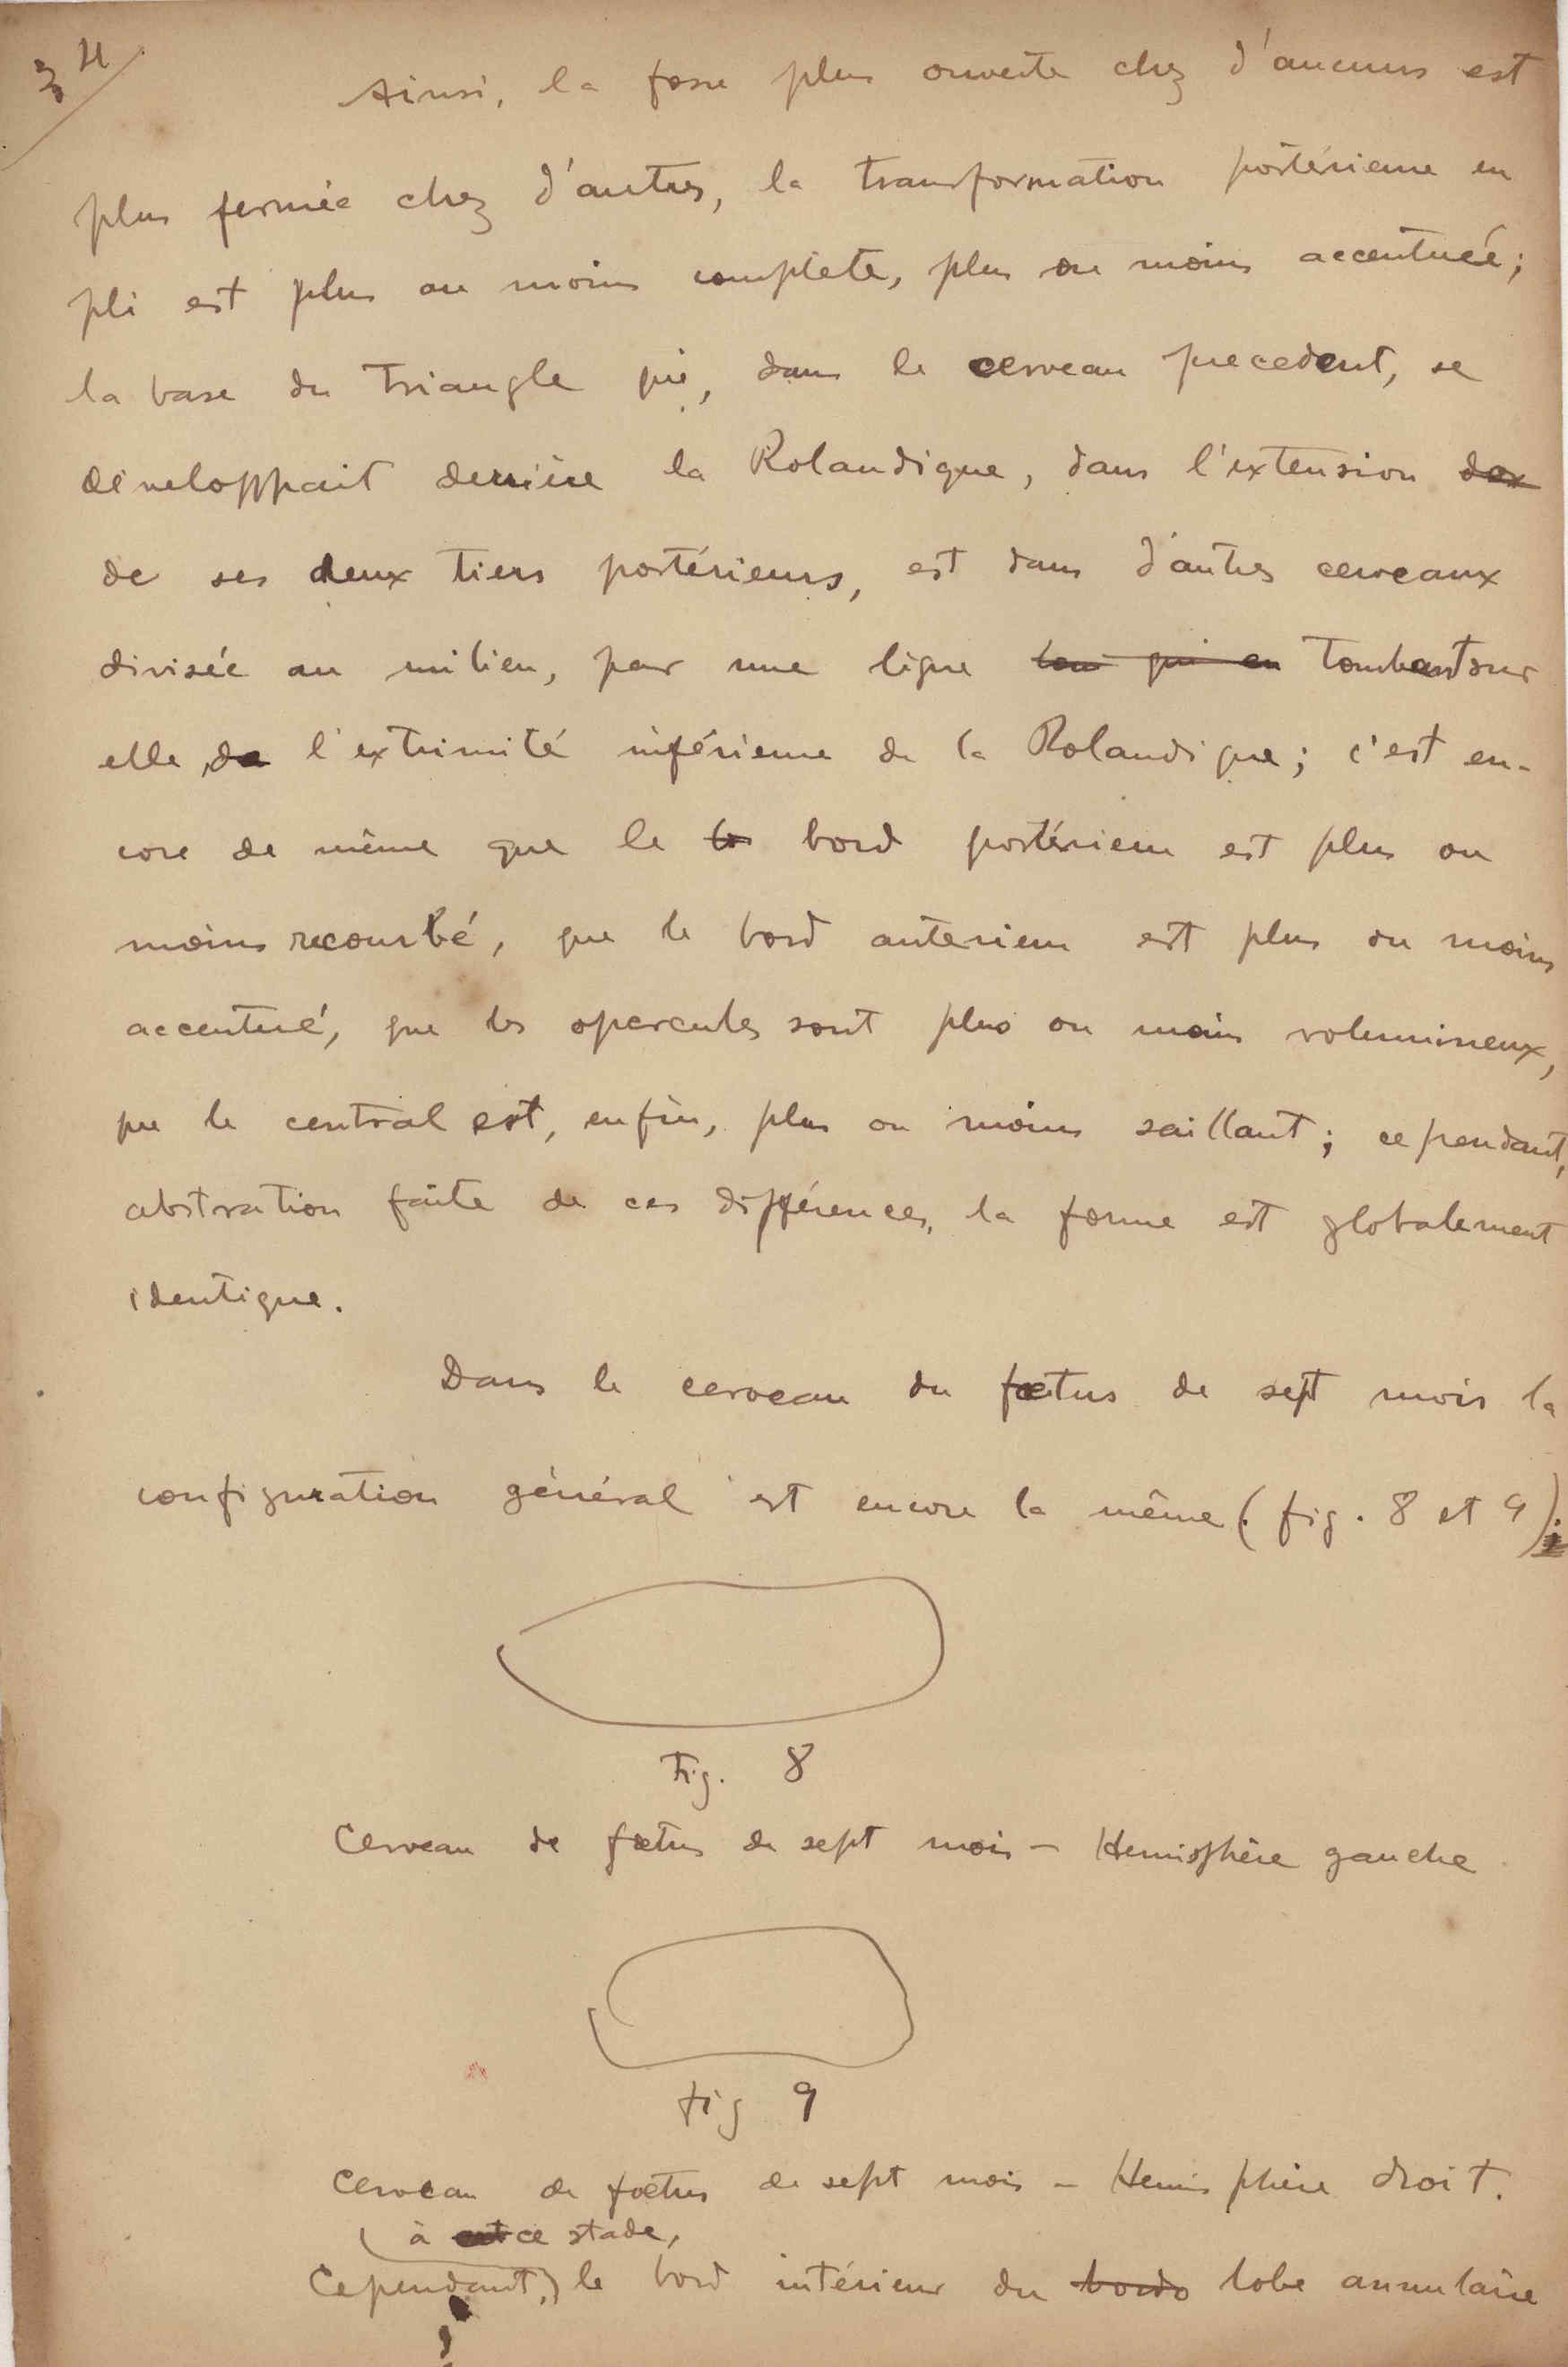 34
Ainsi, la fosse plus ouverte chez d'aucuns est
plus fermée chez d'autres, la transformation postérieure en
pli est plus ou moins complète, plus ou moins accentuée;
la base du triangle qui, dans le cerveau precedent, se
développait derrière la Rolandique, dans l'extension
de ses deux tiers postérieurs, est dans d'autres cerveaux
divisée au milieu, par une ligne tombant sur
elle, de l'extrimité inférieure de la Rolandique; c'est en-
core de même que le bord postérieur est plus ou
moins recourbé, que le bord anterieur est plus ou moins
accentué, que les opercules sont plus ou moins volumineux,
que le central est, enfin, plus ou moins saillant; cependant,
abstration faite de ces différences, la forme est globalement
identique.
Dans le cerveau du fœtus de sept mois la
configuration général est encore la même (fig. 8 et 9);
Fig. 8
Cerveau de fœtus de sept mois – Hemisphère gauche
fig 9
Cerveau de fœtus de sept mois – Hemisphère droit.
à ce stade,
Cependant, le bord intérieur du lobe annulaire